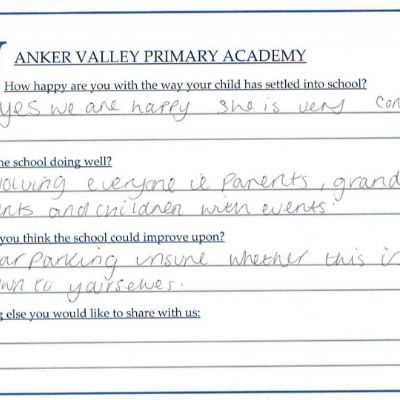 ANKER VALLEY PRIMARY ACADEMY
How happy are you with the way your child has settled into school?
yes we are happy she is very con
he school doing well?
volving everyone ie parents, grand
nts and children with events.
you think the school could improve upon?
ar parking unsure whether this i
wn to yairselves.
g else you would like to share with us: